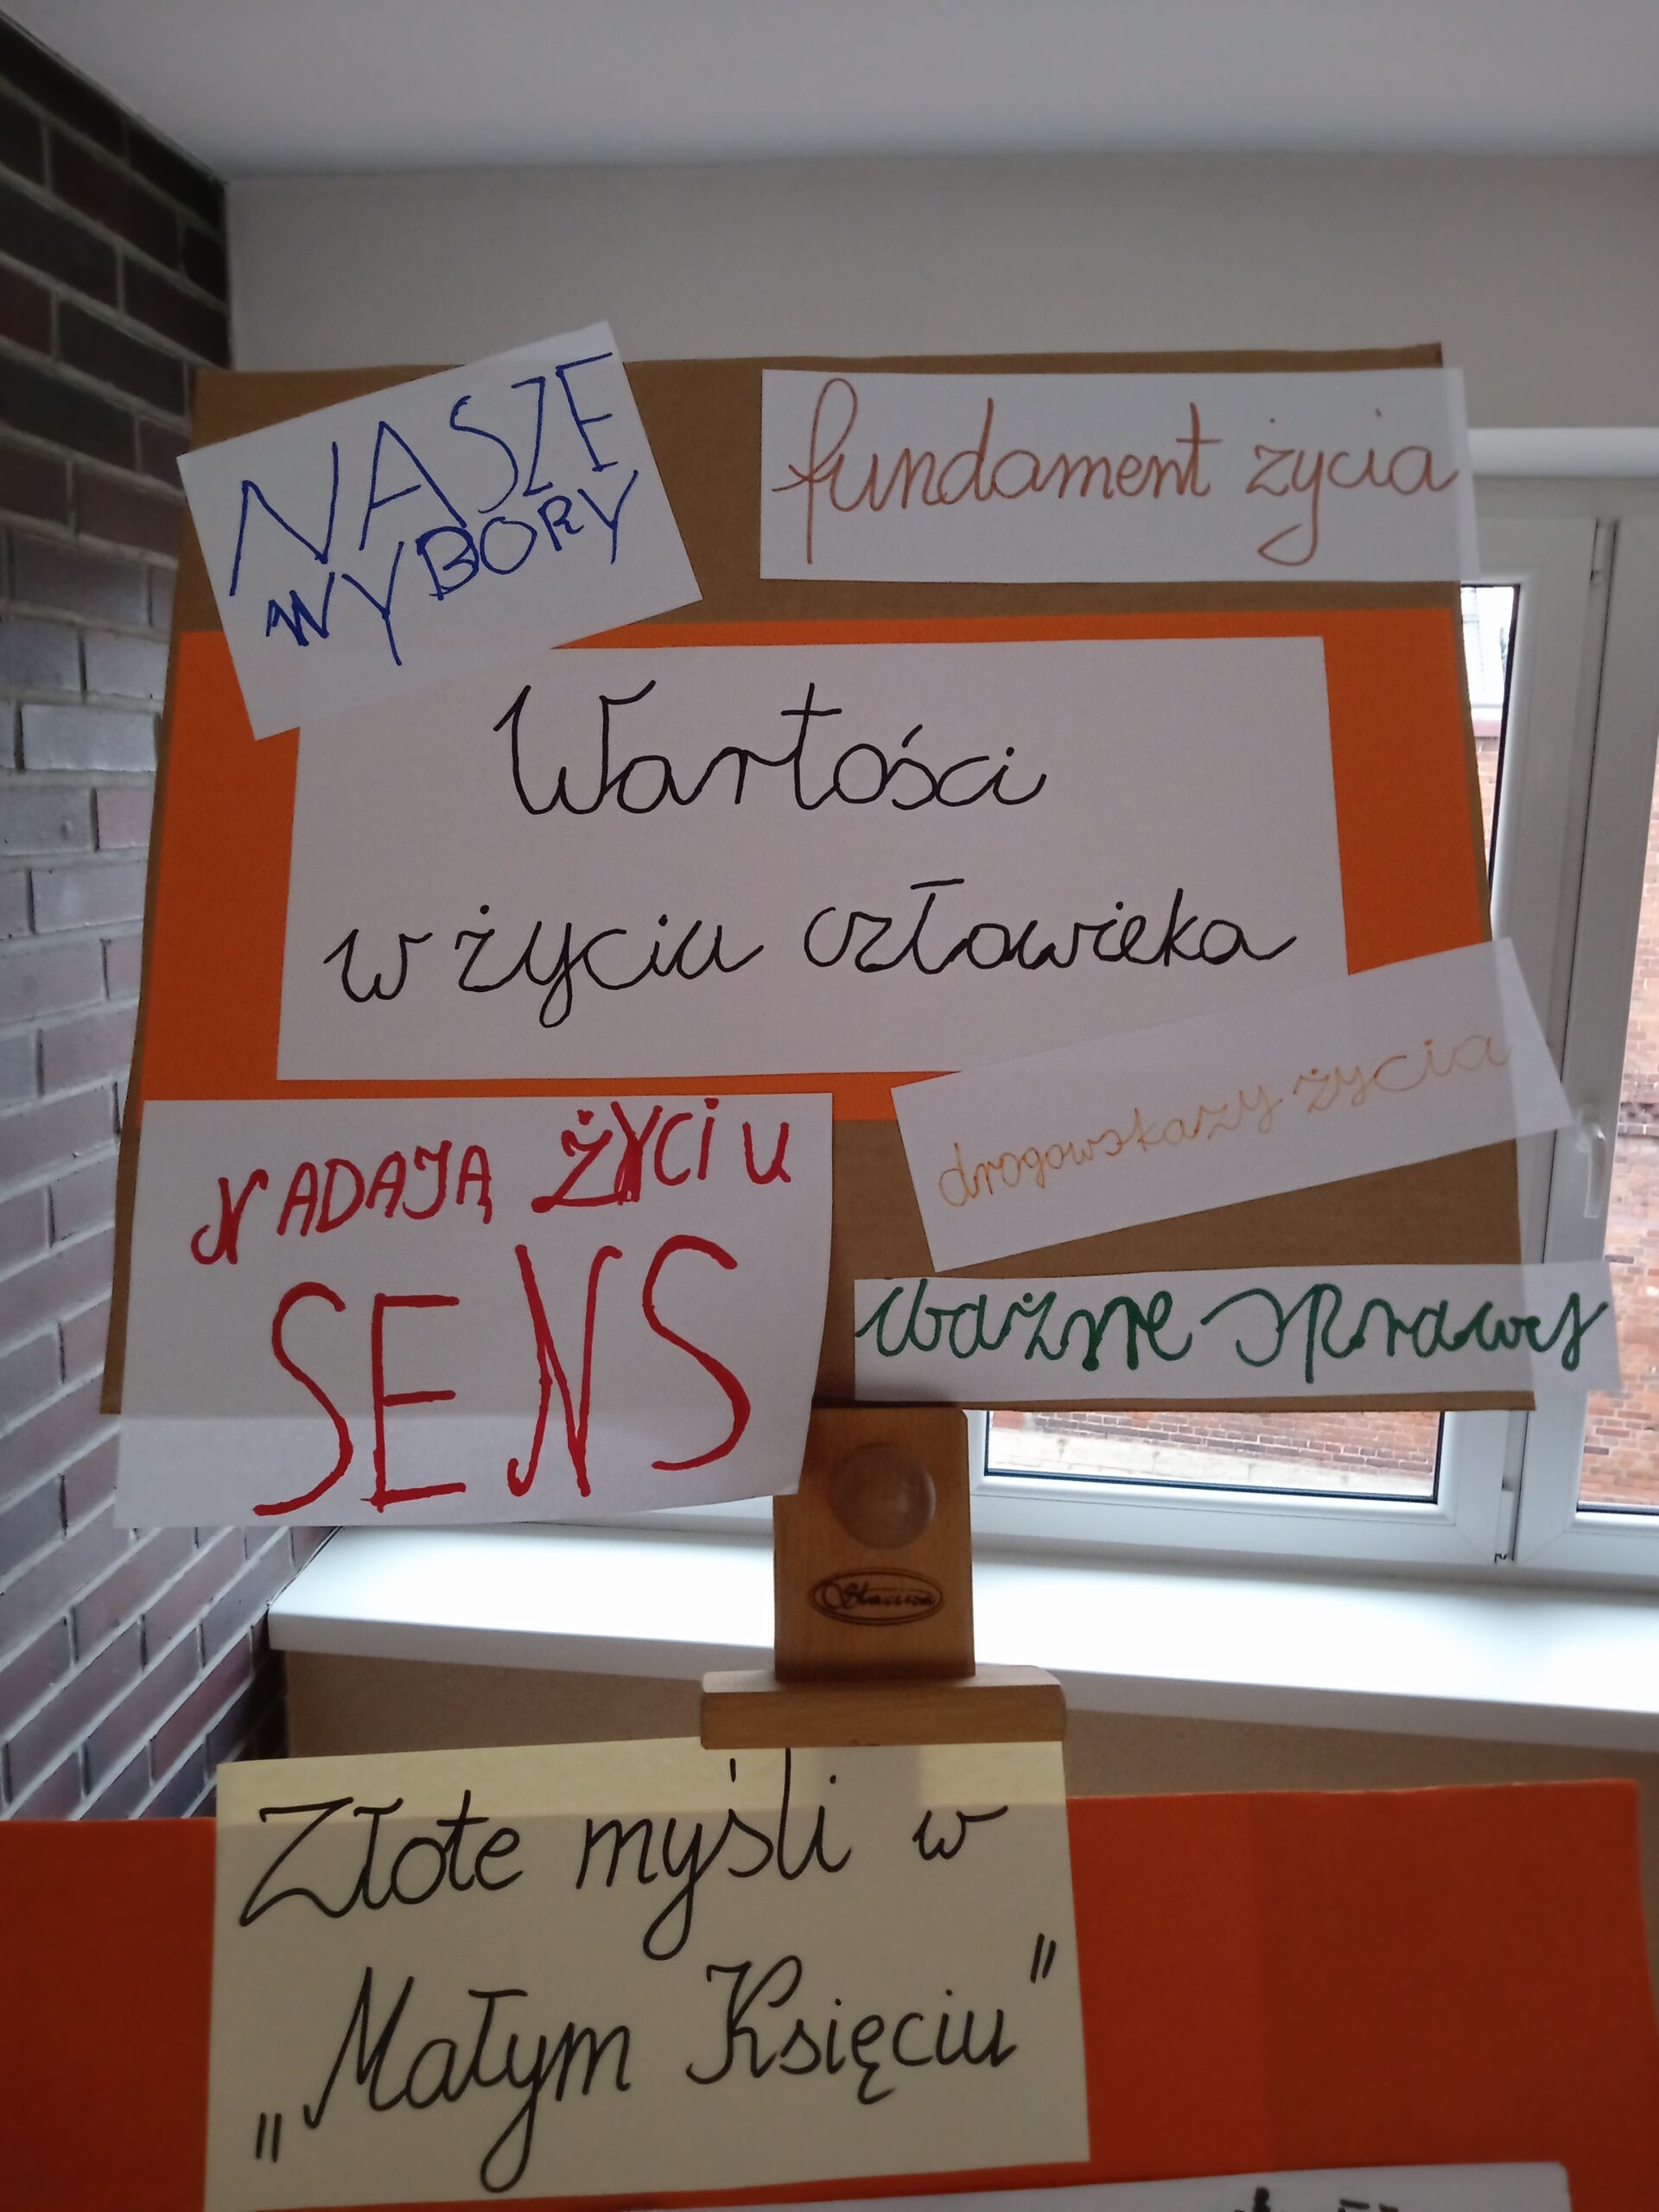 NASZE
WYBORY
fundament życia
Wartości
w życiu człowieka
drogowskazy życia
NADAJĄ ŻYCIU
SENS
ważne sprawy
Złote myśli w
„Małym Księciu"